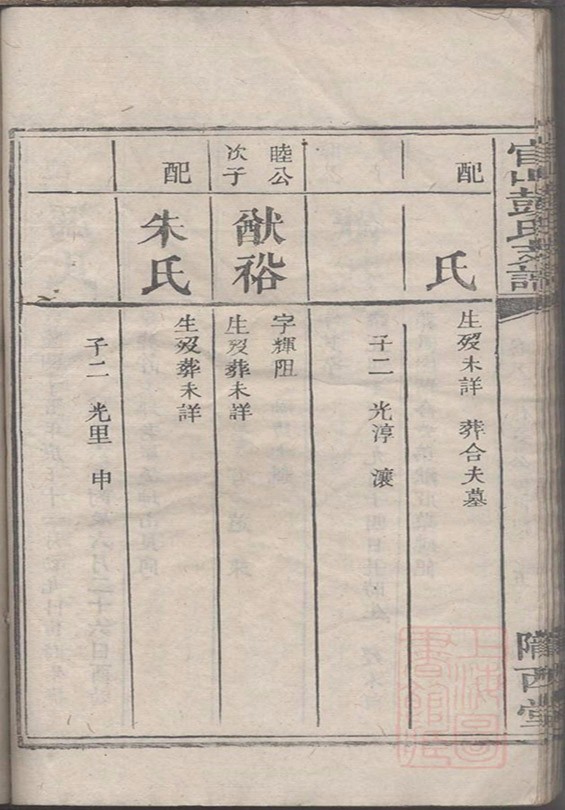 官山彭氏支譜
隴西堂
配
氏
生歿未詳 葬合夫墓
子二 光淳 瀼
睦公
次子
猷裕
字輝阻
生歿葬未詳
配
朱氏
生歿葬未詳
子二 光里 申
上海圖
書館藏